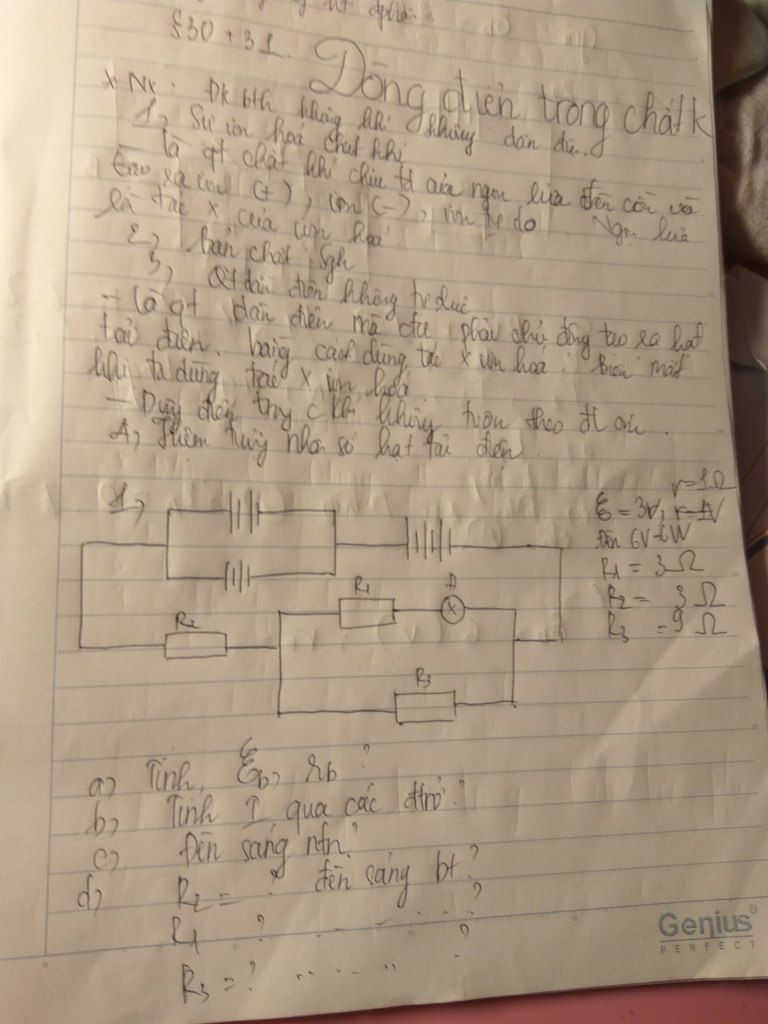 §30 + 31
Dòng điện trong chất k
* Nx: Đk bth không khí không dẫn đ..
1, Sự ion hoá chất khí
- là qt chất khí chịu tđ của ngọn lửa đèn cồn và
tạo ra ion (+), ion (-), ion tự do. Ngọn lửa
là tác x của ion hoá
2, bản chất: Sgk
3, Qt dẫn điện không tự lực
- là qt dẫn điện mà đk phải chủ động tạo ra hạt
tải điện. bằng cách dùng tác x ion hoá. Biến mất
khi ta dùng tác x ion hoá
- Dòng điện trong c khí không tuân theo đl ôm.
4, nhân số hạt tải điện
1,
r = 1Ω
ℰ = 3V,
Đèn 6V-6W
R1 = 3Ω
R2 = 3Ω
R3 = 9Ω
R1
Đ
R2
R3
a) Tính, ℰb, rb ?
b) Tính I qua các đtrở?
c) Đèn sáng ntn?
d) R2 = ? đèn sáng bt?
R1 ? .. .. .. ?
R3 = ? .. .. .. "
Genius
PERFECT